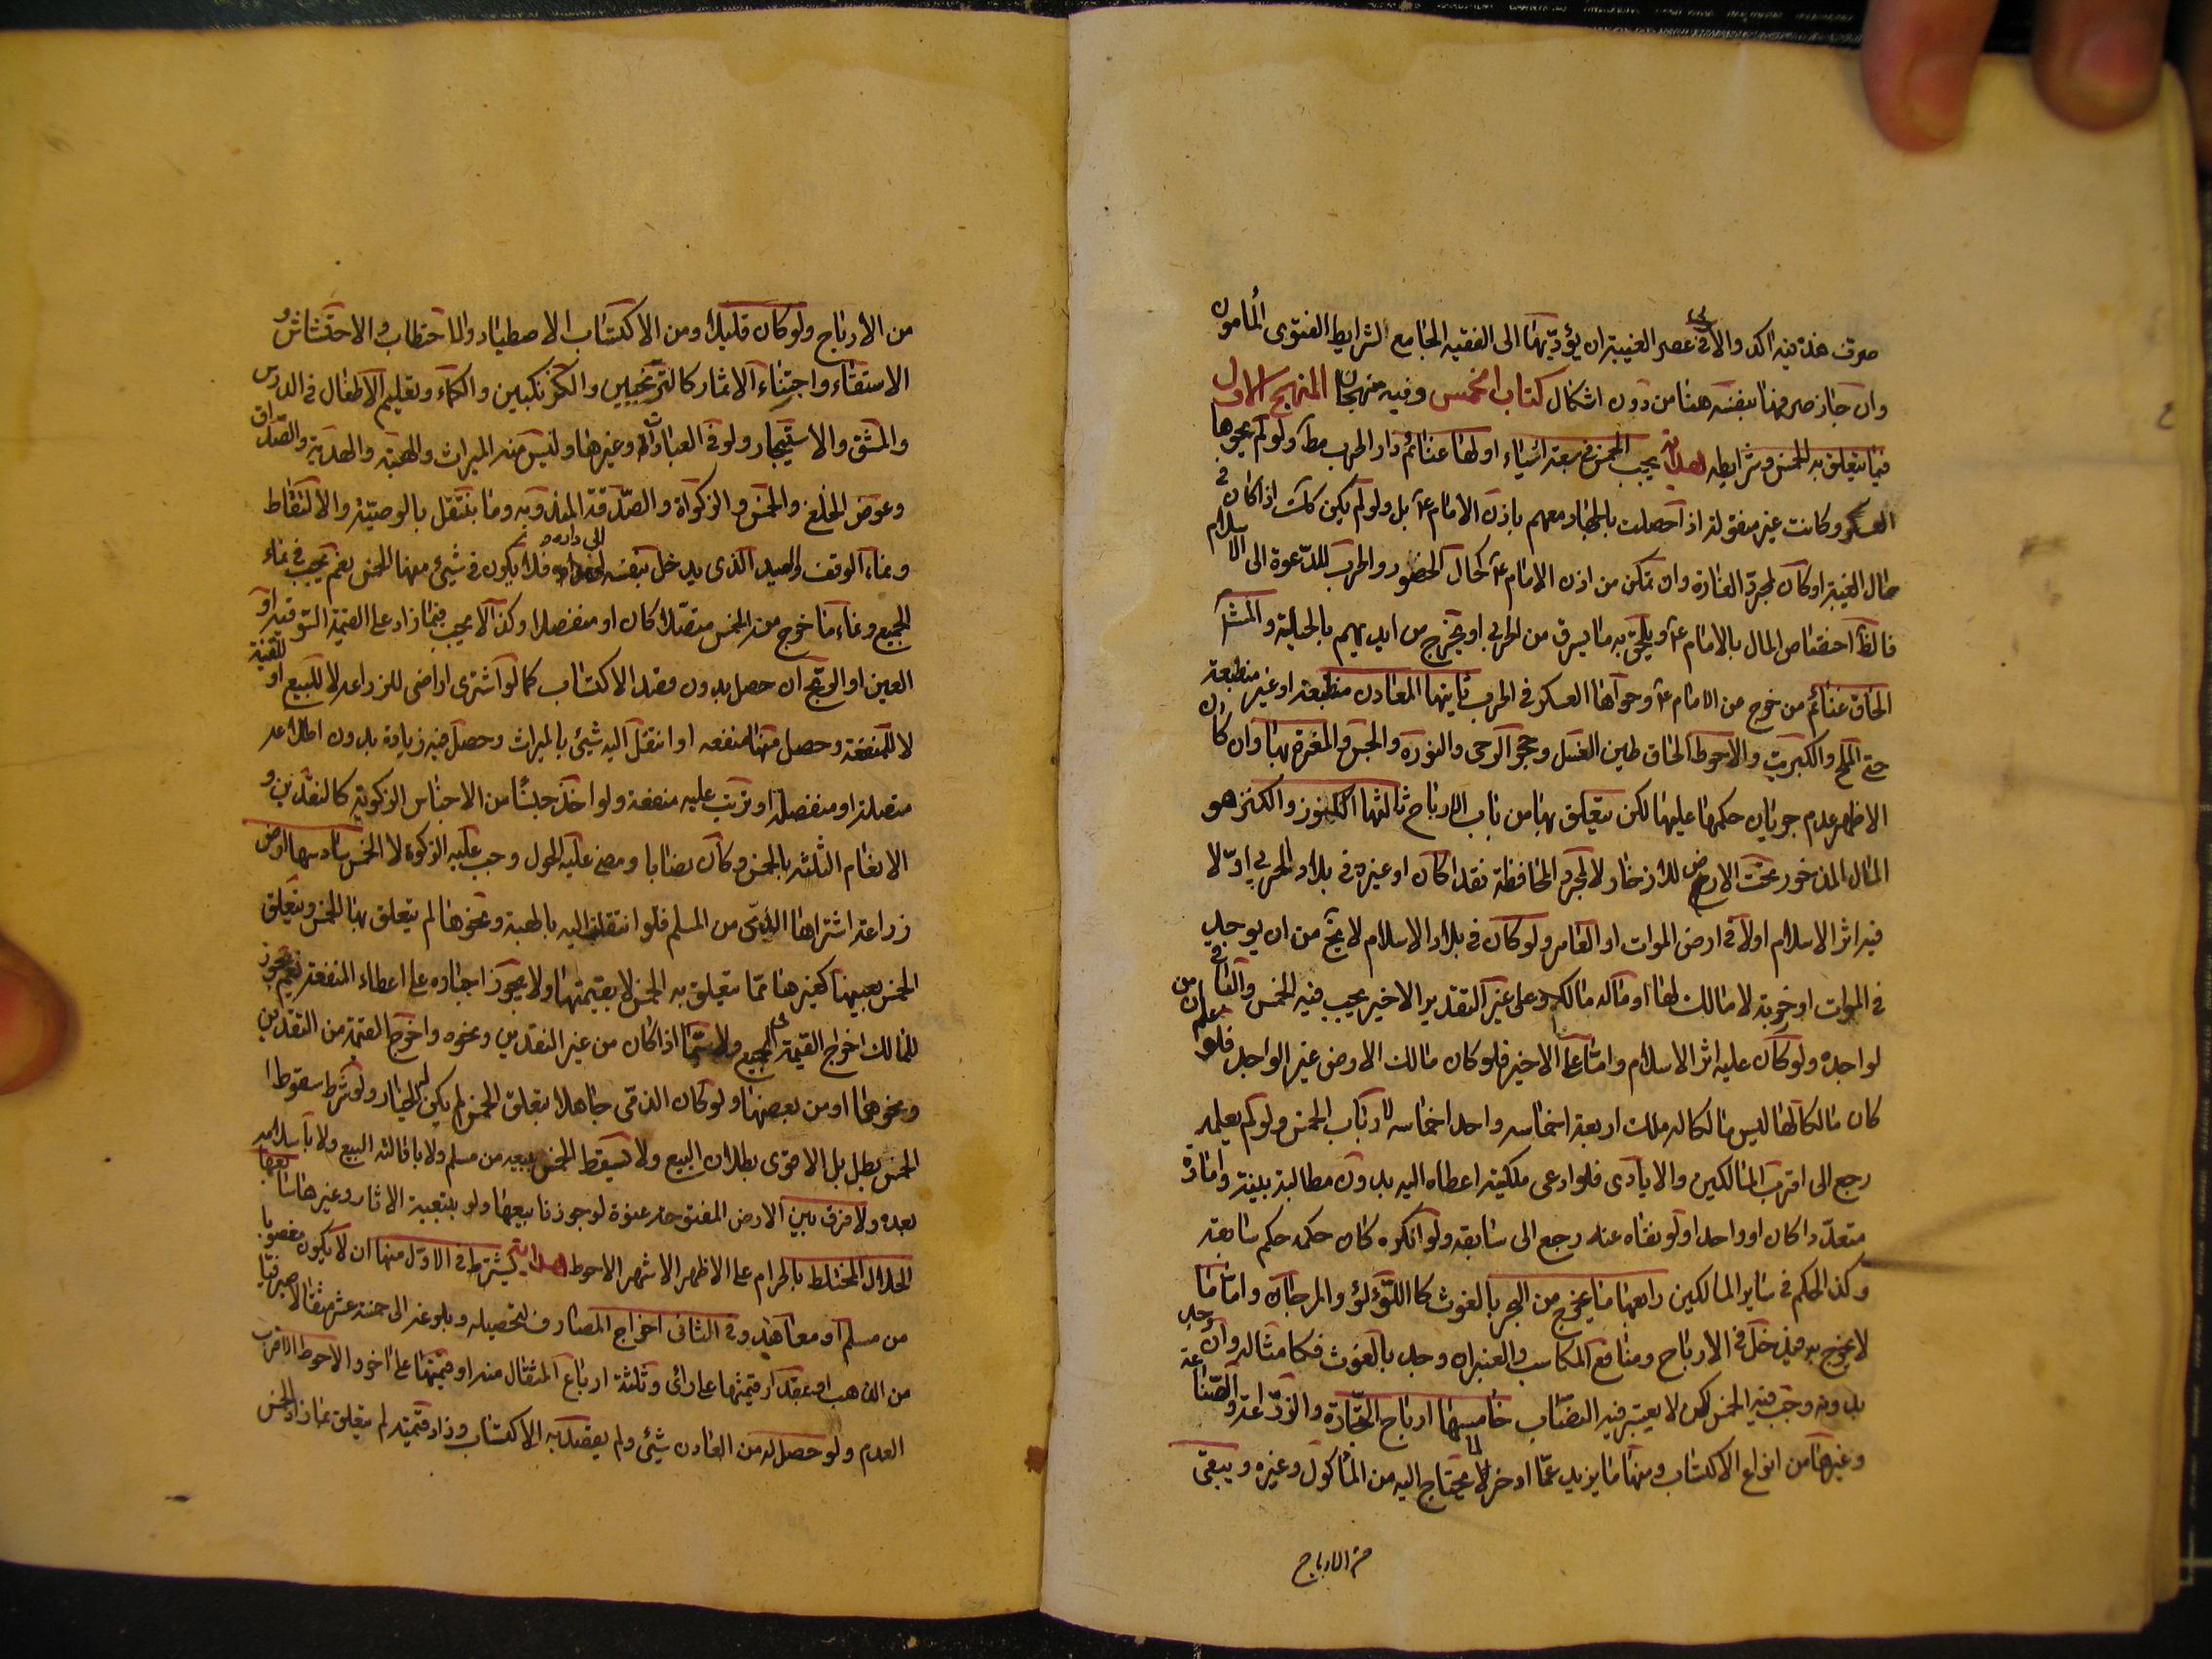 صرف هذه فيه اكد والاولى فى عصر الغيبة ان يؤديها الى الفقيه الجامع الشرايط الفتوى المأمون
وان جاز صرفها بنفسه هنا من دون اشكال كتاب الخمس وفيه منهجان المنهج الاول
فيما يتعلق به الخمس وشرايطه هداية يجب الخمس فى سبعة اشياء اولها غنائم دار الحرب مط ولو لم يحوها
العسكر وكانت غير منقولة اذا حصلت بالجهاد معهم باذن الامام ع بل ولو لم يكن كك اذا كان فى
حال الغيبة او كان لمجرد الغارة وان تمكن من اذن الامام ع كحال الحضور والحرب للدعوة الى الاسلام
فالظ اختصاص المال بالامام ع ويلحق به ما يسرق من الحربى او يخرج من ايديهم بالحيلة و
الحاق غنائم من خرج من الامام ع وحواها العسكر فى الحرب ثانيها المعادن منطبعة او غير منطبعة
حتى الملح والكبريت والاحوط الحاق طين الغسل وحجر الرحى والنورة والجص والمغرة بها وان كان
الاظهر عدم جريان حكمها عليها لكن يتعلق بها من باب الارباح ثالثها الكنوز والكنز هو
المال المذخور تحت الارض للاذخار لا لمجرد المحافظة نقدا كان او غيره فى بلاد الحربى او لا
فيه اثر الاسلام او لا فى ارض الموات او العامر ولو كان فى بلاد الاسلام لا يخ من ان يوجد
فى الموات او خربة لا مالك لها او ماله مالك وعلى غير التقدير الاخير يجب فيه الخمس والباقى
لواجده ولو كان عليه اثر الاسلام واما على الاخير فلو كان مالك الارض غير الواجد فلو علم ان من
كان مالكا لها ليس مالكا له ملك اربعة اخماسه واحد اخماسه لارباب الخمس ولو لم يعلمه
رجع الى اقرب المالكين والايادى فلو ادعى ملكيته اعطاه اليه بدون مطالبة بينة وامارة
متعددا كان او واحدا ولو نفاه عنه رجع الى سابقه ولو انكره كان حكمه حكم سابقه
وكذا الحكم فى ساير المالكين رابعها ما يخرج من البحر بالغوص كاللؤلؤ والمرجان واما ما
لا يخرج به فيدخل فى الارباح ومنافع المكاسب والعنبر ان وجد بالغوص فكامثاله وان وجد
بدونه وجب فيه الخمس لكن لا يعتبر فيه النصاب خامسها ارباح التجارة والزراعة والصناعة
وغيرها من انواع الاكتساب ومنها ما يزيد عما ادخر لما يحتاج اليه من المأكول وغيره ويبقى
من الارباح
من الارباح ولو كان قليلا ومن الاكتساب الاصطياد والاحتطاب والاحتشاش و
الاستقاء واجتناء الاثمار كالترنجبين والكزنكبين والكماء وتعليم الاطفال فى الدرس
والمشق والاستيجار ولو فى العبادات وغيرها وليس منه الميراث والهبة والهدية والصداق
وعوض الخلع والخمس والزكواة والصدقة المندوبة وما ينتقل بالوصية والالتقاط
ونماء الوقف والصيد الذى يدخل بنفسه الى داره فلا يكون فى شيئ منها الخمس نعم يجب فى نماء
الجميع ونماء ما خرج منه الخمس متصلا كان او منفصلا وكذا لا يجب فيما زاد على القيمة السوقية او
العين او الربح ان حصل بدون قصد الاكتساب كما لو اشترى اراضى للزراعة لا للبيع او للقنية
لا للمنفعة وحصل منها منفعة او انتقل اليه شيئ بالميراث وحصل فيه زيادة بدون اطلاعه
متصلة او منفصلة او ترتب عليه منفعة ولو اخذ جنسا من الاجناس الزكوية كالنقدين و
الانعام الثلثة بالخمس وكان نصابا ومضى عليه الحول وجب عليه الزكوة لا الخمس سادسها ارض
زراعة اشتراها الذمى من المسلم فلو انتقلت اليه بالهبة ونحوها لم يتعلق بها الخمس ويتعلق
الخمس بعينها كغيرها مما يتعلق به الخمس لا بقيمتها ولا يجوز اجباره على اعطاء المنفعة نعم يجوز
للمالك اخراج القيمة فى الجميع ولا سيما اذا كان من غير النقدين ونحوه واخرج القيمة من النقدين
ونحوها او من بعضها ولو كان الذمى جاهلا بتعلق الخمس لم يكن له الخيار ولو شرط سقوط
الخمس بطل بل الاقوى بطلان البيع ولا يسقط الخمس ببيعه من مسلم ولا باقالة البيع ولا باسلامه
بعده ولا فرق بين الارض المفتوحة عنوة لو جوزنا بيعها ولو بتبعية الاثار وغيرها سابعها
الحلال المختلط بالحرام على الاظهر الاشهر الاحوط هداية يشترط فى الاول منها ان لا يكون مغصوبا
من مسلم او معاهد وفى الثانى اخراج المصارف لتحصيله وبلوغه الى خمسة عشر مثقالا صيرفيا
من الذهب او بقدر قيمتها على رائى وثلثة ارباع المثقال منه او قيمتها على اخر والاحوط الاقرب
العدم ولو حصل له من المعادن شيئ ولم يقصد به الاكتساب وزاد قيمته لم يتعلق بما زاد الخمس